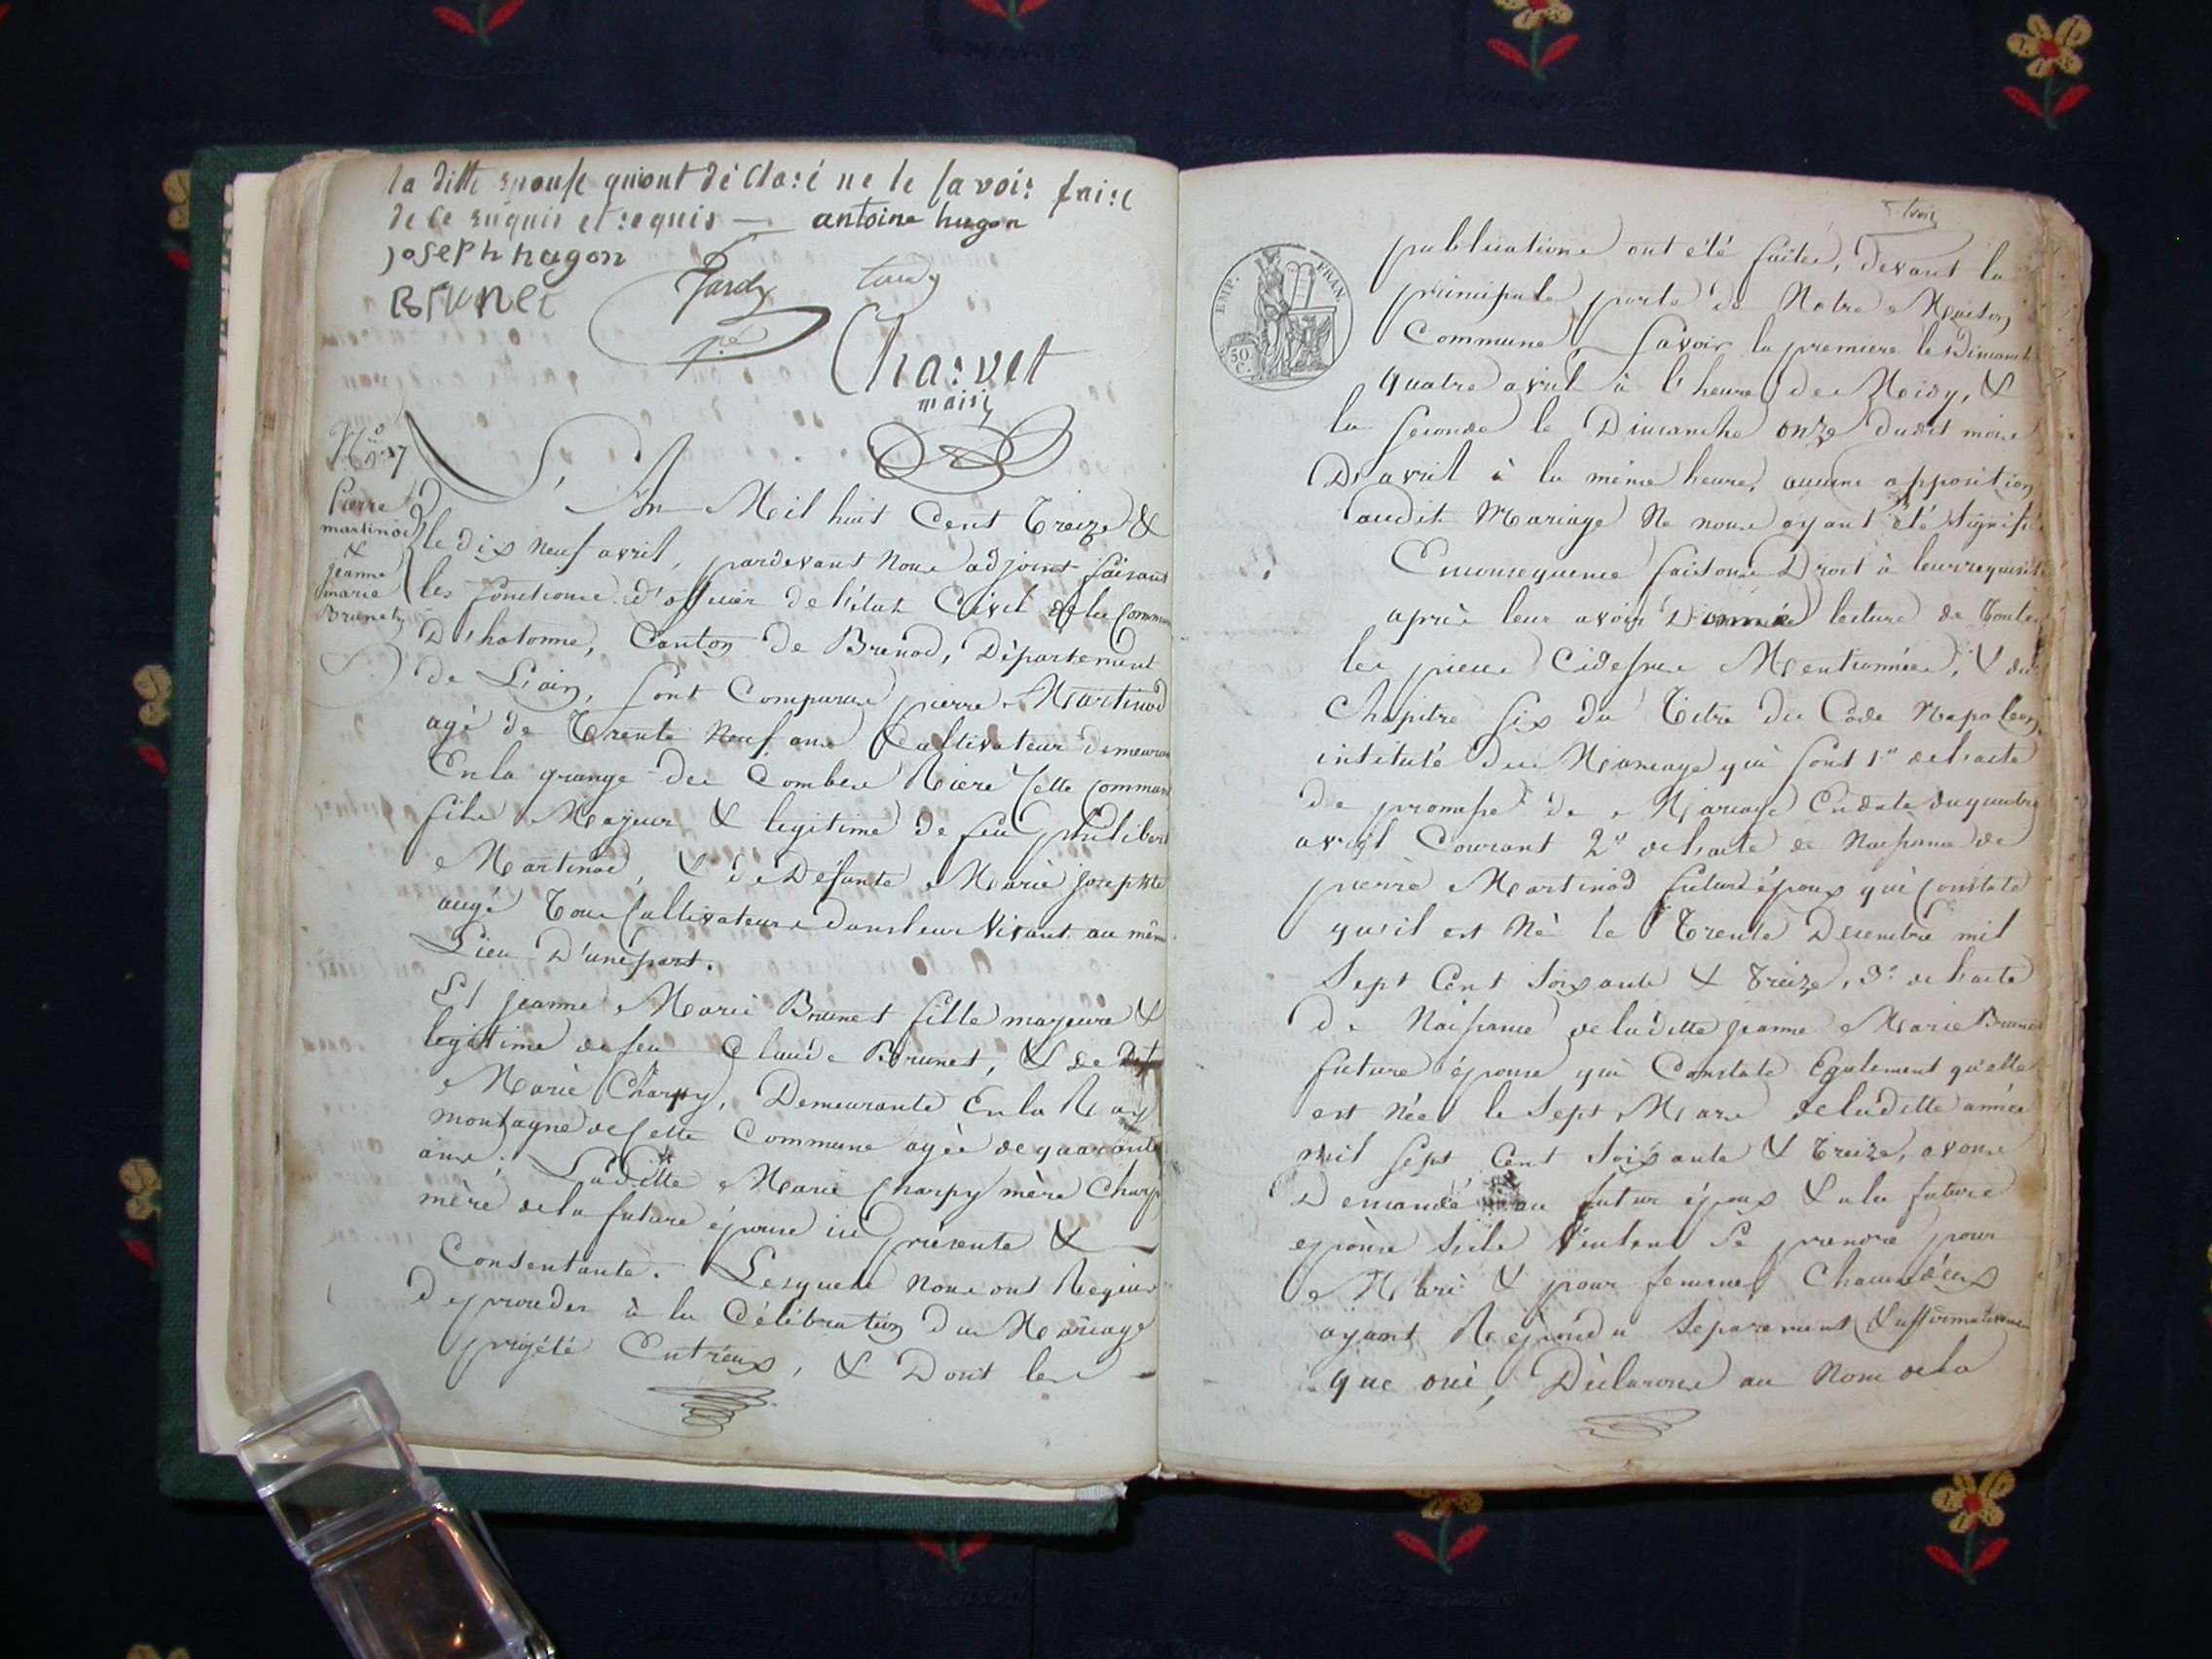 la ditte Epouse qui ont déclaré ne le savoir faire
de ce enquis et requis — antoine hugon
joseph hugon
Tardy tardy
BRUNET
Charvet
maire
N.o 17
Pierre
martinod
&
jeanne
marie
Brunet
L'An Mil huit Cent Treize &
le dix Neuf avril, pardevant Nous adjoint faisant
les fonctions d'officier de l'état Civil de la Commune
D'hotonne, Canton de Brenod, Département
de L'ain, sont Comparus pierre Martinod
agé de Trente Neuf ans Cultivateur demeurant
En la grange des Combes Riere Cette Commune
fils Majeur & legitime de feu philibert
Martinod, & de Défunte Marie Josephte
augé Tous Cultivateurs dans leur Vivant au même
Lieu D'une part.
Et jeanne Marie Brunet fille majeure &
legitime de feu Claude Brunet, & de
Marie Charpy, Demeurante En la
montagne de Cette Commune agée de quarante
ans; Laditte Marie Charpy mère Charpy
mère de la future épouse ici présente &
Consentante. Lesquels Nous ont Requis
de proceder à la Célébration du Mariage
projété Entr'eux, & Dont les
trois
EMP. FRAN.
50 C.
publications ont été faites, devant la
principale porte de Notre Maison
Commune Savoir la premiere le Dimanche
quatre avril à l'heure de Midy, &
la seconde le Dimanche onze dudit mois
D'avril à la même heure, aucune opposition
audit Mariage Ne nous ayant été signifiée
En consequence faisons Droit à leur requisition
après leur avoir Donné lecture de Toutes
les pieces Cidessus Mentionnées, & du
Chapitre six du Titre du Code Napoleon
intitulé du Mariage qui sont 1o de l'acte
de promesse de Mariage En date du quatre
avril Courant 2o de l'acte de Naissance de
pierre Martinod futur époux qui Constate
qu'il est Né le Trente Decembre mil
Sept Cent Soixante & Treize, 3o de l'acte
de Naissance de laditte jeanne Marie Brunet
future épouse qui Constate Egalement qu'elle
est Née le Sept Mars de laditte année
mil Sept Cent Soixante & Treize, avons
Demandé au futur époux & a la future
epouse s'ils veulent Se prendre pour
Mari & pour femme, Chacun d'eux
ayant Repondu Separement & affirmativement
que oui, Déclarons au Nom de la